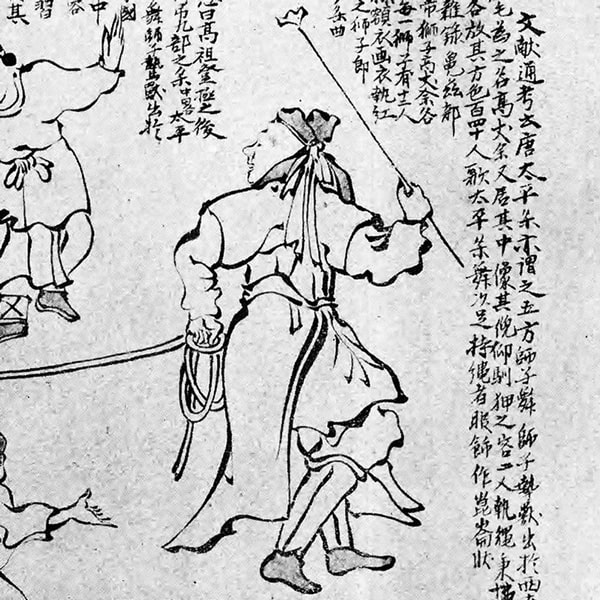 文献通考云唐太平樂亦謂之五方師子舞 師子摯獸出於西
毛為之各高丈余人居其中像其俛仰馴狎之容二人執繩秉拂
各放其方色百四十人歌太平樂舞以足持繩者服飾作崑崙狀
龜茲部
師子高丈余各
每一獅子有十二人
額衣画衣執紅
之獅子郎
樂曲
高祖登極之後
九部之樂中畧太平
舞師子摯獸出於
國
中
習
其